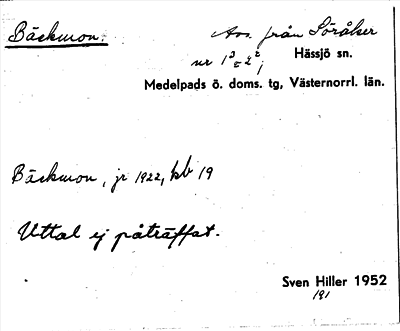 Bäckmon.
Avs. från Söråker
nr 1³ = 2²,
Hässjö sn.
Medelpads ö. doms. tg, Västernorrl. län.
Bäckmon, jr 1922, kb 19
Uttal ej påträffat.
Sven Hiller 1952
191